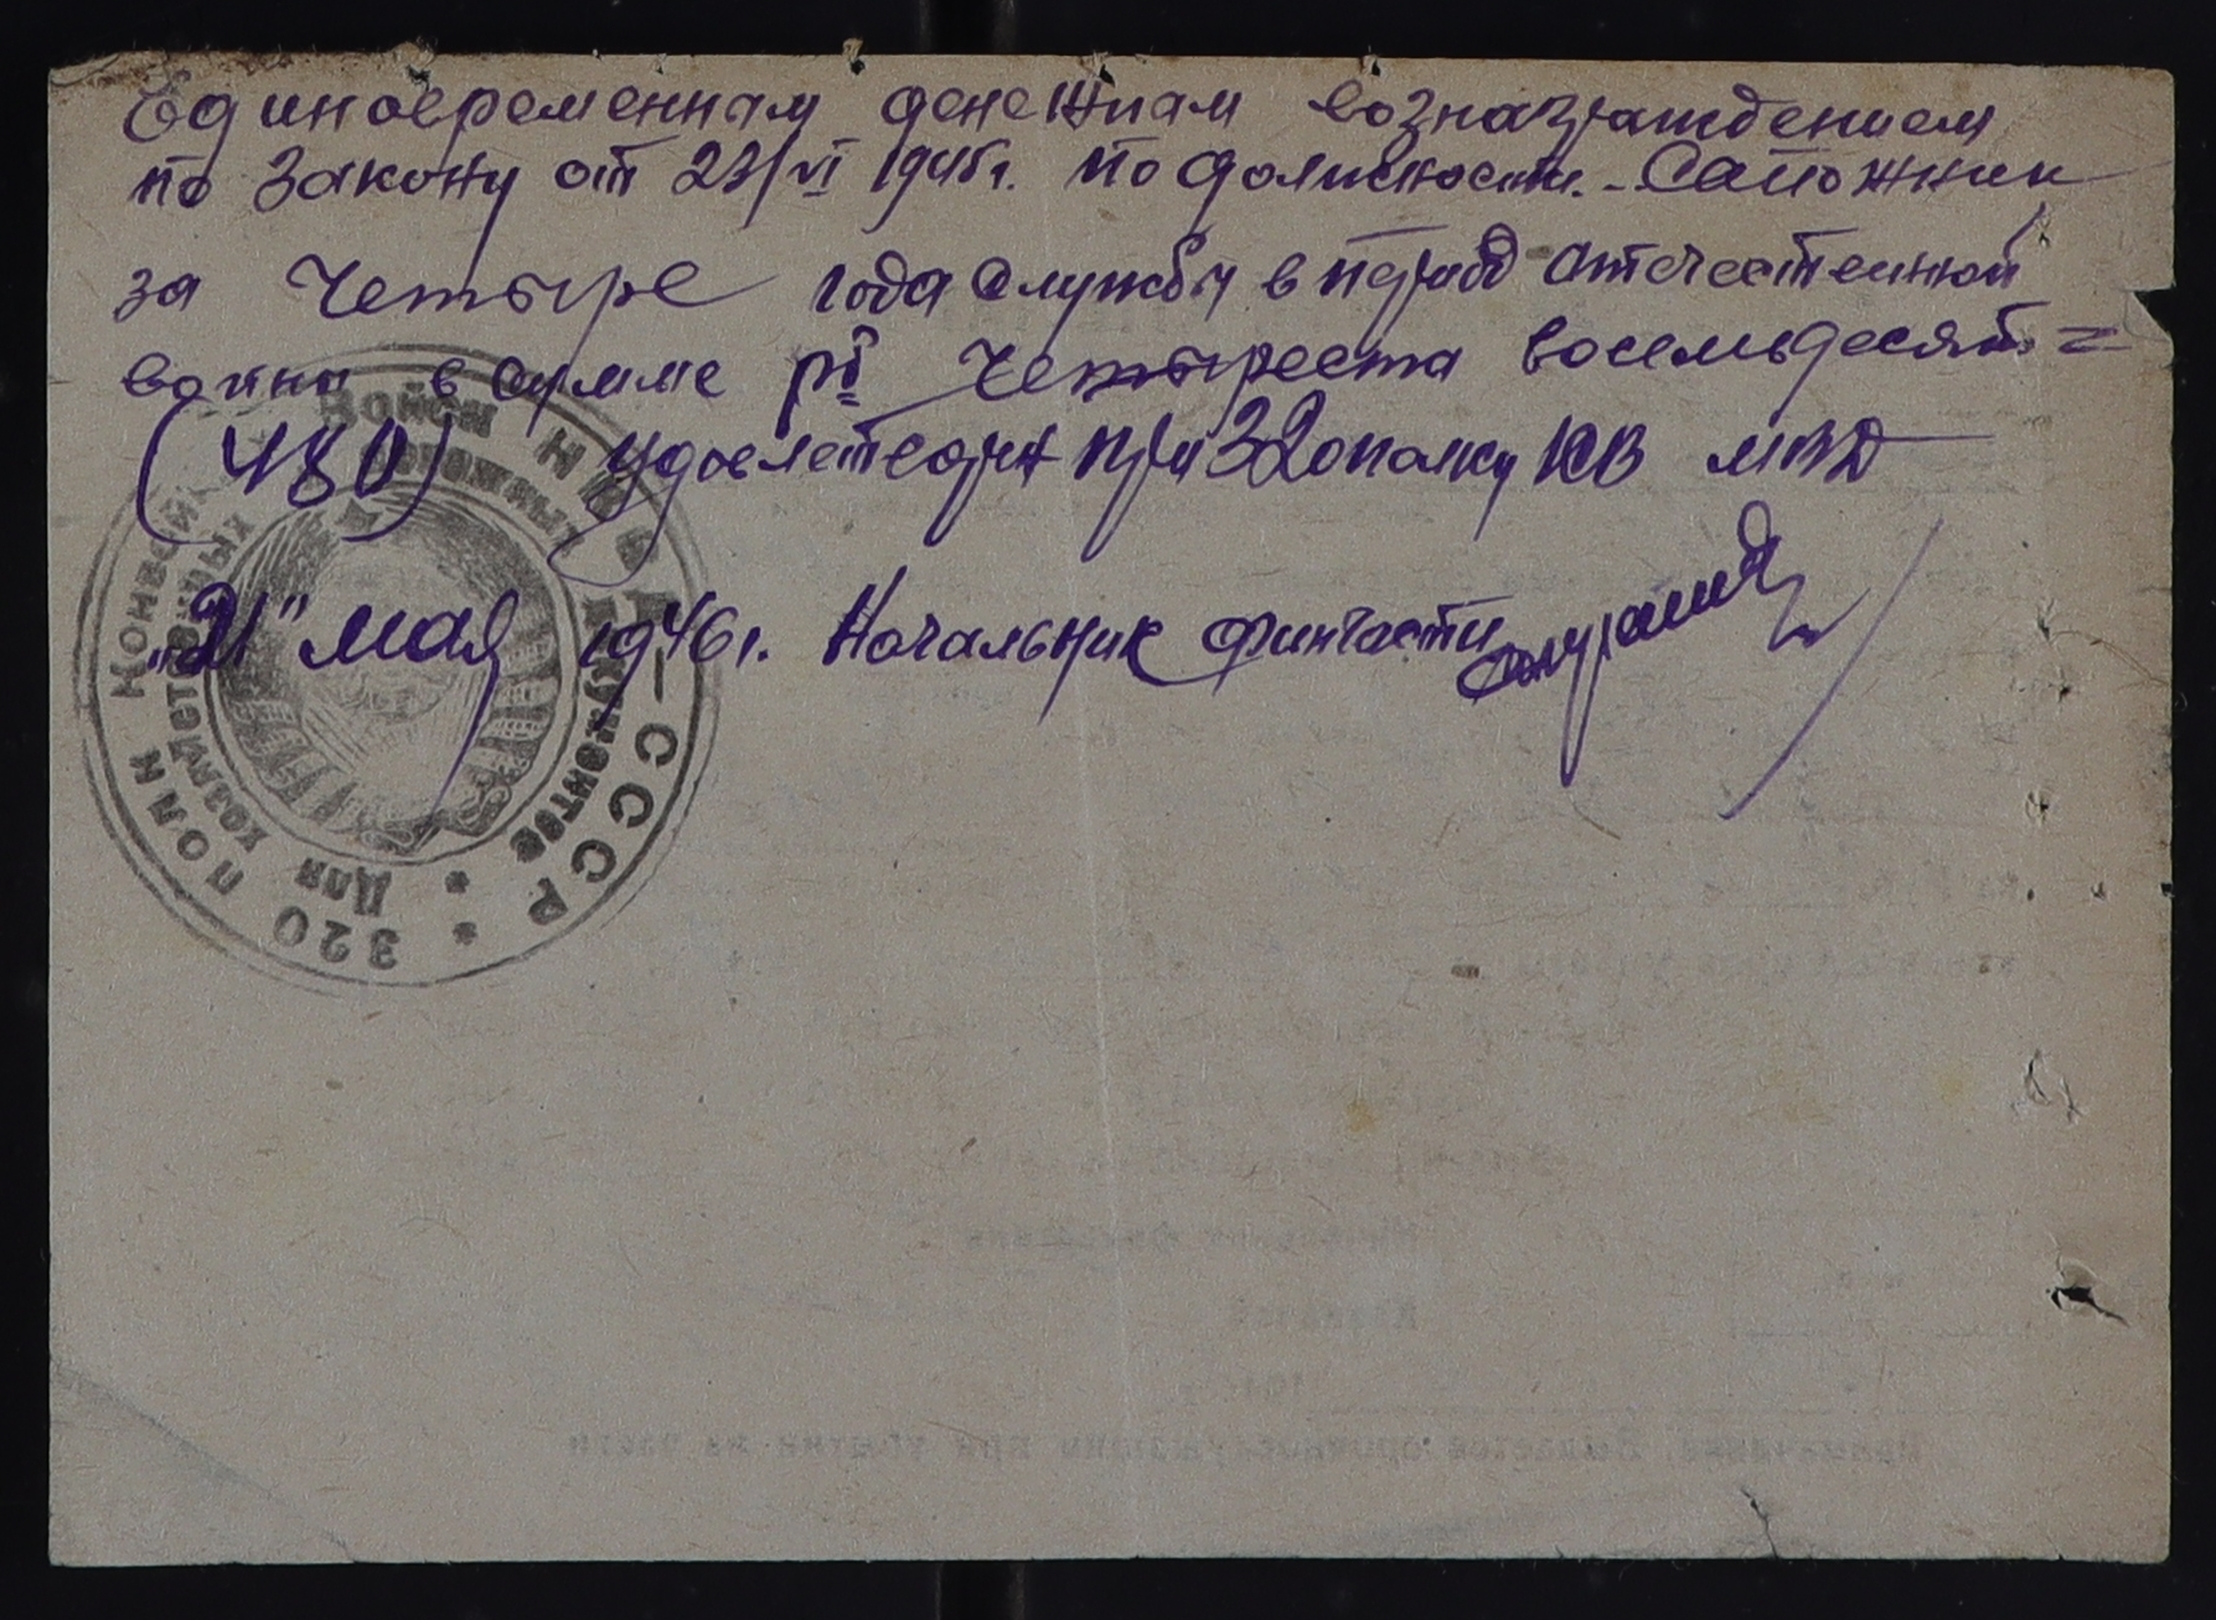 Единовременным денежным вознаграждением
по закону от 23/VI 1945 г. по должности. - Сапожник
за Четыре года службы в период отечественной
войны в сумме рб Четыреста восемьдесят =
(480) удовлетворен при 320 полку КВ МВД
"21" мая 1946 г. Начальник финчасти
320 полк Конвойн Войск НКВД-СССР
Для хозаметеж ных документов